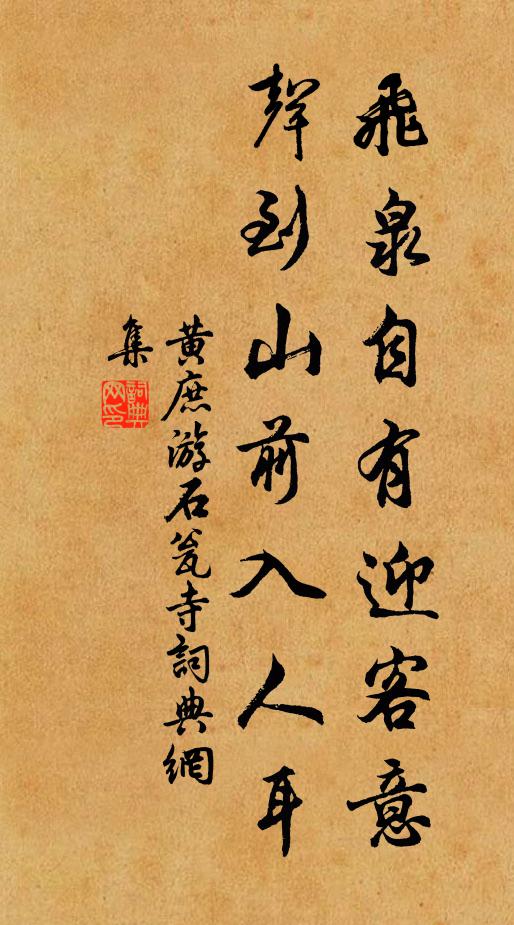 飛泉自有迎客意
聲到山前入人耳
黃庶游石瓮寺詞典網
集
詞典網印